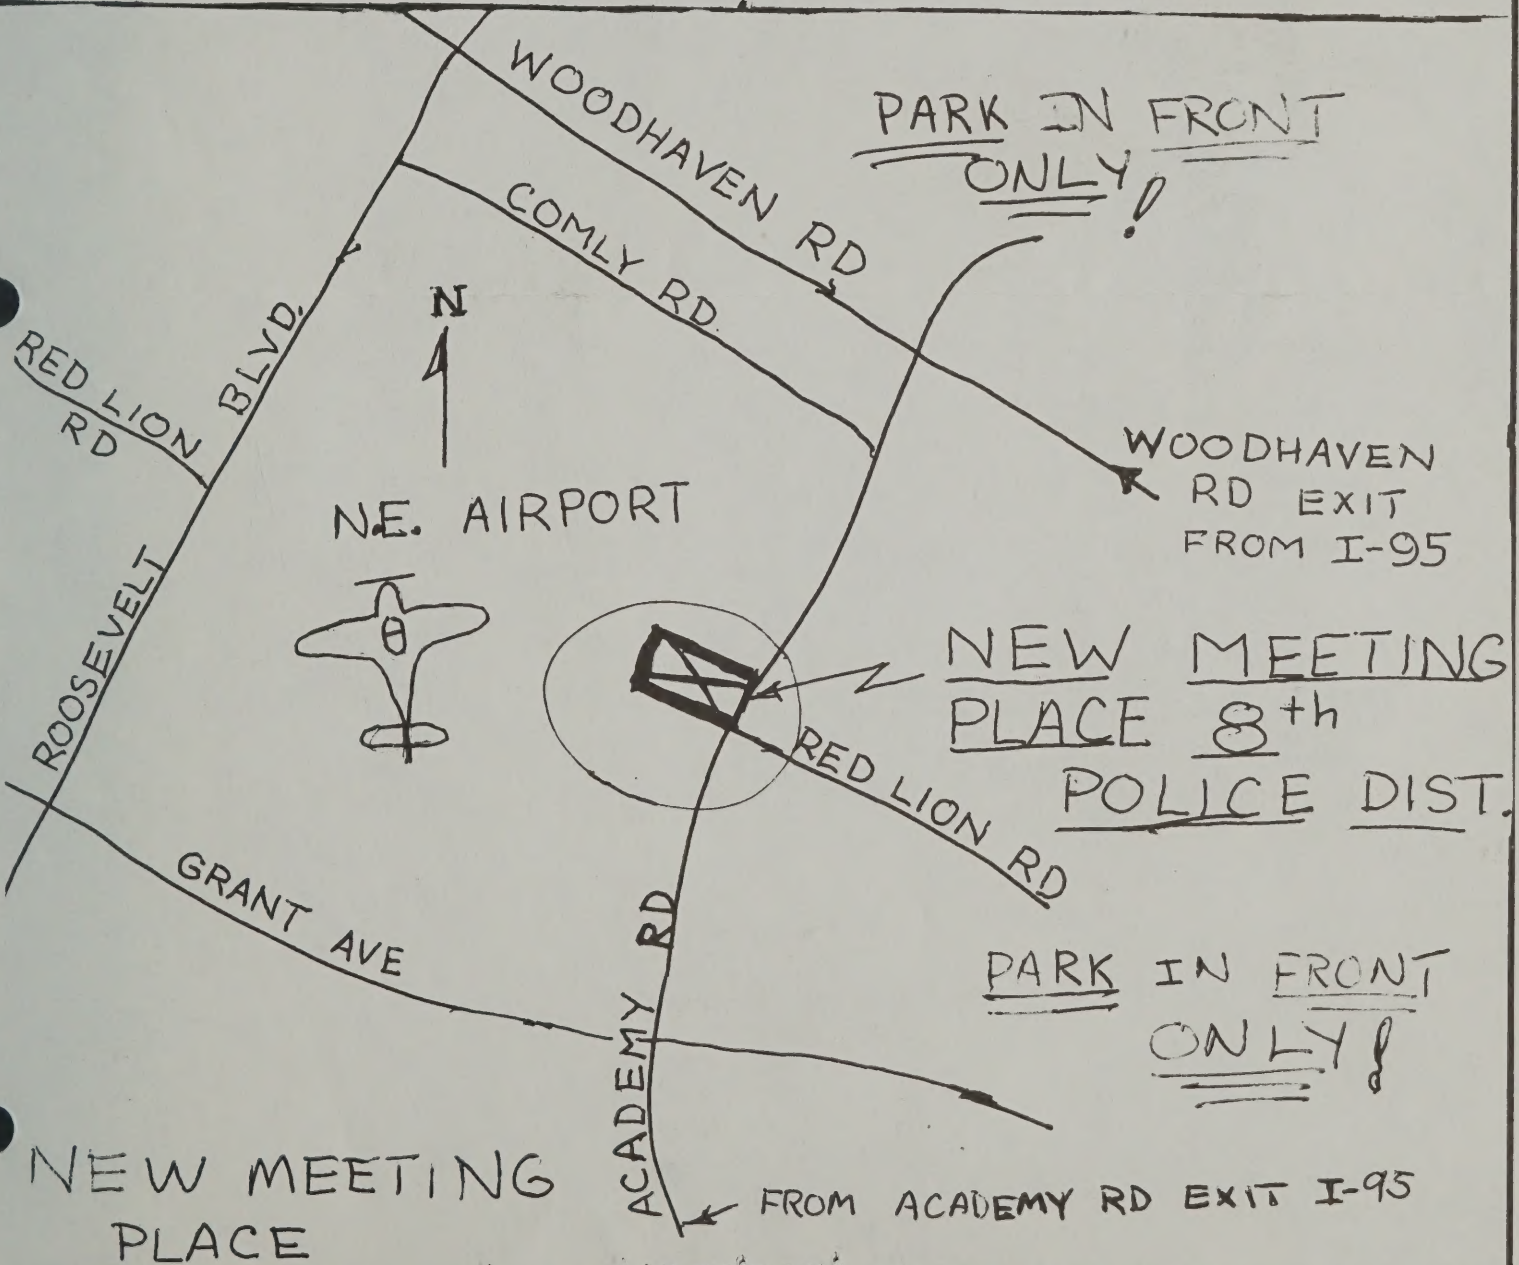 WOODHAVEN RD
PARK IN FRONT
ONLY!
COMLY RD.
N
RED LION
RD
ROOSEVELT BLVD.
N.E. AIRPORT
WOODHAVEN
RD EXIT
FROM I-95
NEW MEETING
PLACE 8th
POLICE DIST.
RED LION RD
GRANT AVE
ACADEMY RD
PARK IN FRONT
ONLY!
NEW MEETING
PLACE
FROM ACADEMY RD EXIT I-95